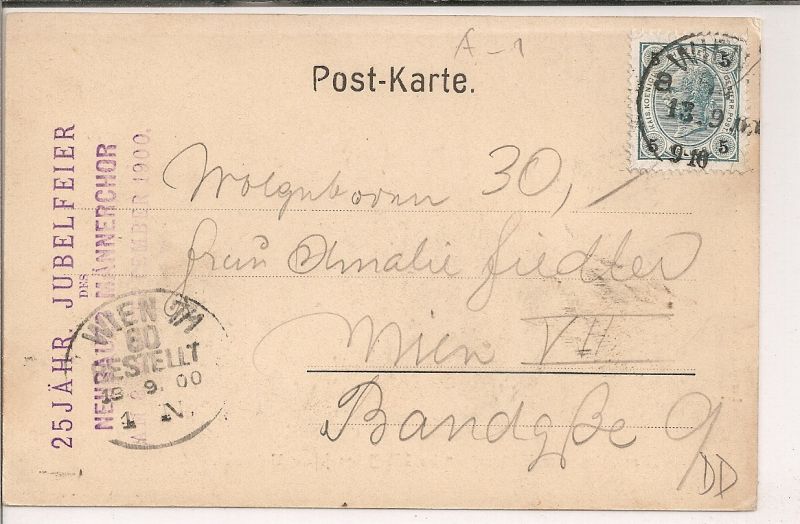 A-1
Post-Karte.
5 5
KAIS. KOENIGL. OESTERR. POST.
5 5
WI
8
13. 9.
9-10
Wolgeboren 30,
Frau Amalie Fiedler
Wien VII
Bandgße 9
DD
25 JÄHR. JUBELFEIER
DES
NEUBAU MÄNNERCHOR
TEMBER 1900.
WIEN 7/1
BESTELLT
9. 00
1 N.